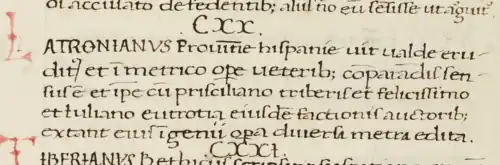 ol accusato defedentib; alus no eu sesisse ut arguit.
CXX.
LATRONIANVS Prouintie hispanie uit ualde eru-
dit9 et i metrico ope ueterib; coparadus sen-
sus e et ipe cu prisciliano triberis et felicissimo
et Iuliano eutrotia eiusde factionis auctorib;
extant eius igenii opa diuersis metra edita.
CXXI.
TIBERIANVS Bethicus